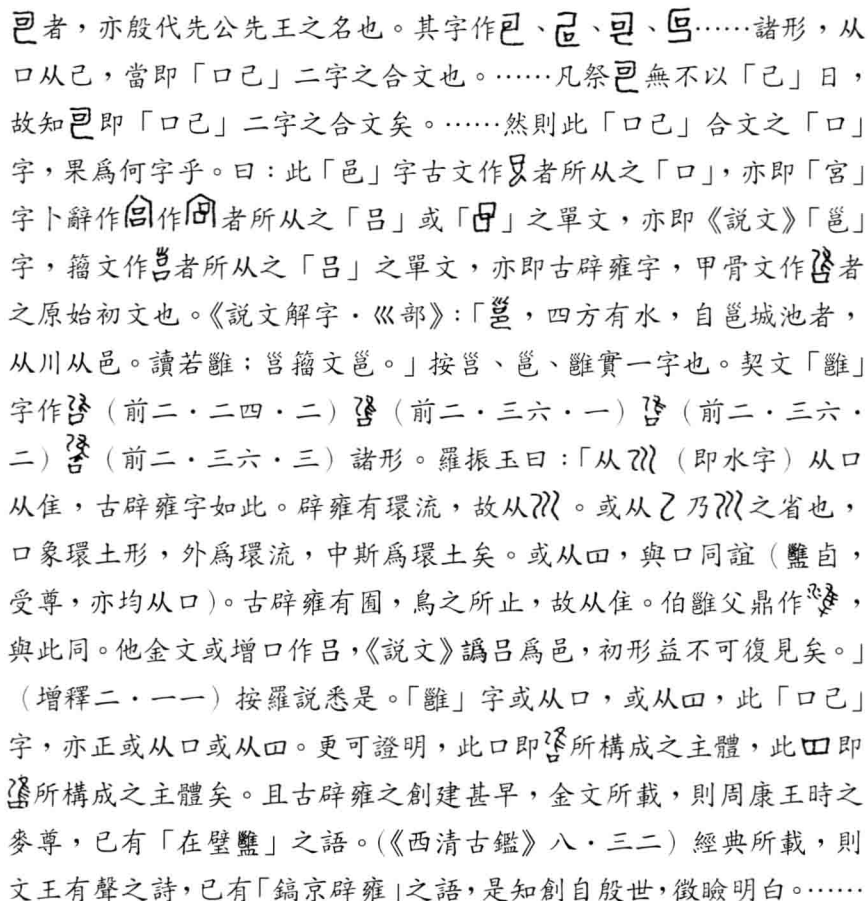 者，亦殷代先公先王之名也。其字作、、、……諸形，从
口从己，當即「口己」二字之合文也。……凡祭無不以「己」日，
故知即「口己」二字之合文矣。……然則此「口己」合文之「口」
字，果爲何字乎。曰：此「邑」字古文作者所从之「口」，亦即「宮」
字卜辭作作者所从之「吕」或「」之單文，亦即《説文》「邕」
字，籀文作者所从之「吕」之單文，亦即古辟雍字，甲骨文作者
之原始初文也。《説文解字·巛部》：「邕，四方有水，自邕城池者，
从川从邑。讀若雝；籀文邕。」按、邕、雝實一字也。契文「雝」
字作（前二·二四·二）（前二·三六·一）（前二·三六·
二）（前二·三六·三）諸形。羅振玉曰：「从（即水字）从口
从隹，古辟雍字如此。辟雍有環流，故从。或从乃之省也，
口象環土形，外爲環流，中斯爲環土矣。或从，與口同誼（卣，
受尊，亦均从口）。古辟雍有囿，鳥之所止，故从隹。伯雝父鼎作，
與此同。他金文或增口作吕，《説文》譌吕爲邑，初形益不可復見矣。」
（增釋二·一一）按羅説悉是。「雝」字或从口，或从，此「口己」
字，亦正或从口或从。更可證明，此口即所構成之主體，此即
所構成之主體矣。且古辟雍之創建甚早，金文所載，則周康王時之
麥尊，已有「在璧」之語。（《西清古鑑》八·三二）經典所載，則
文王有聲之詩，已有「鎬京辟雍」之語，是知創自殷世，徵驗明白。……